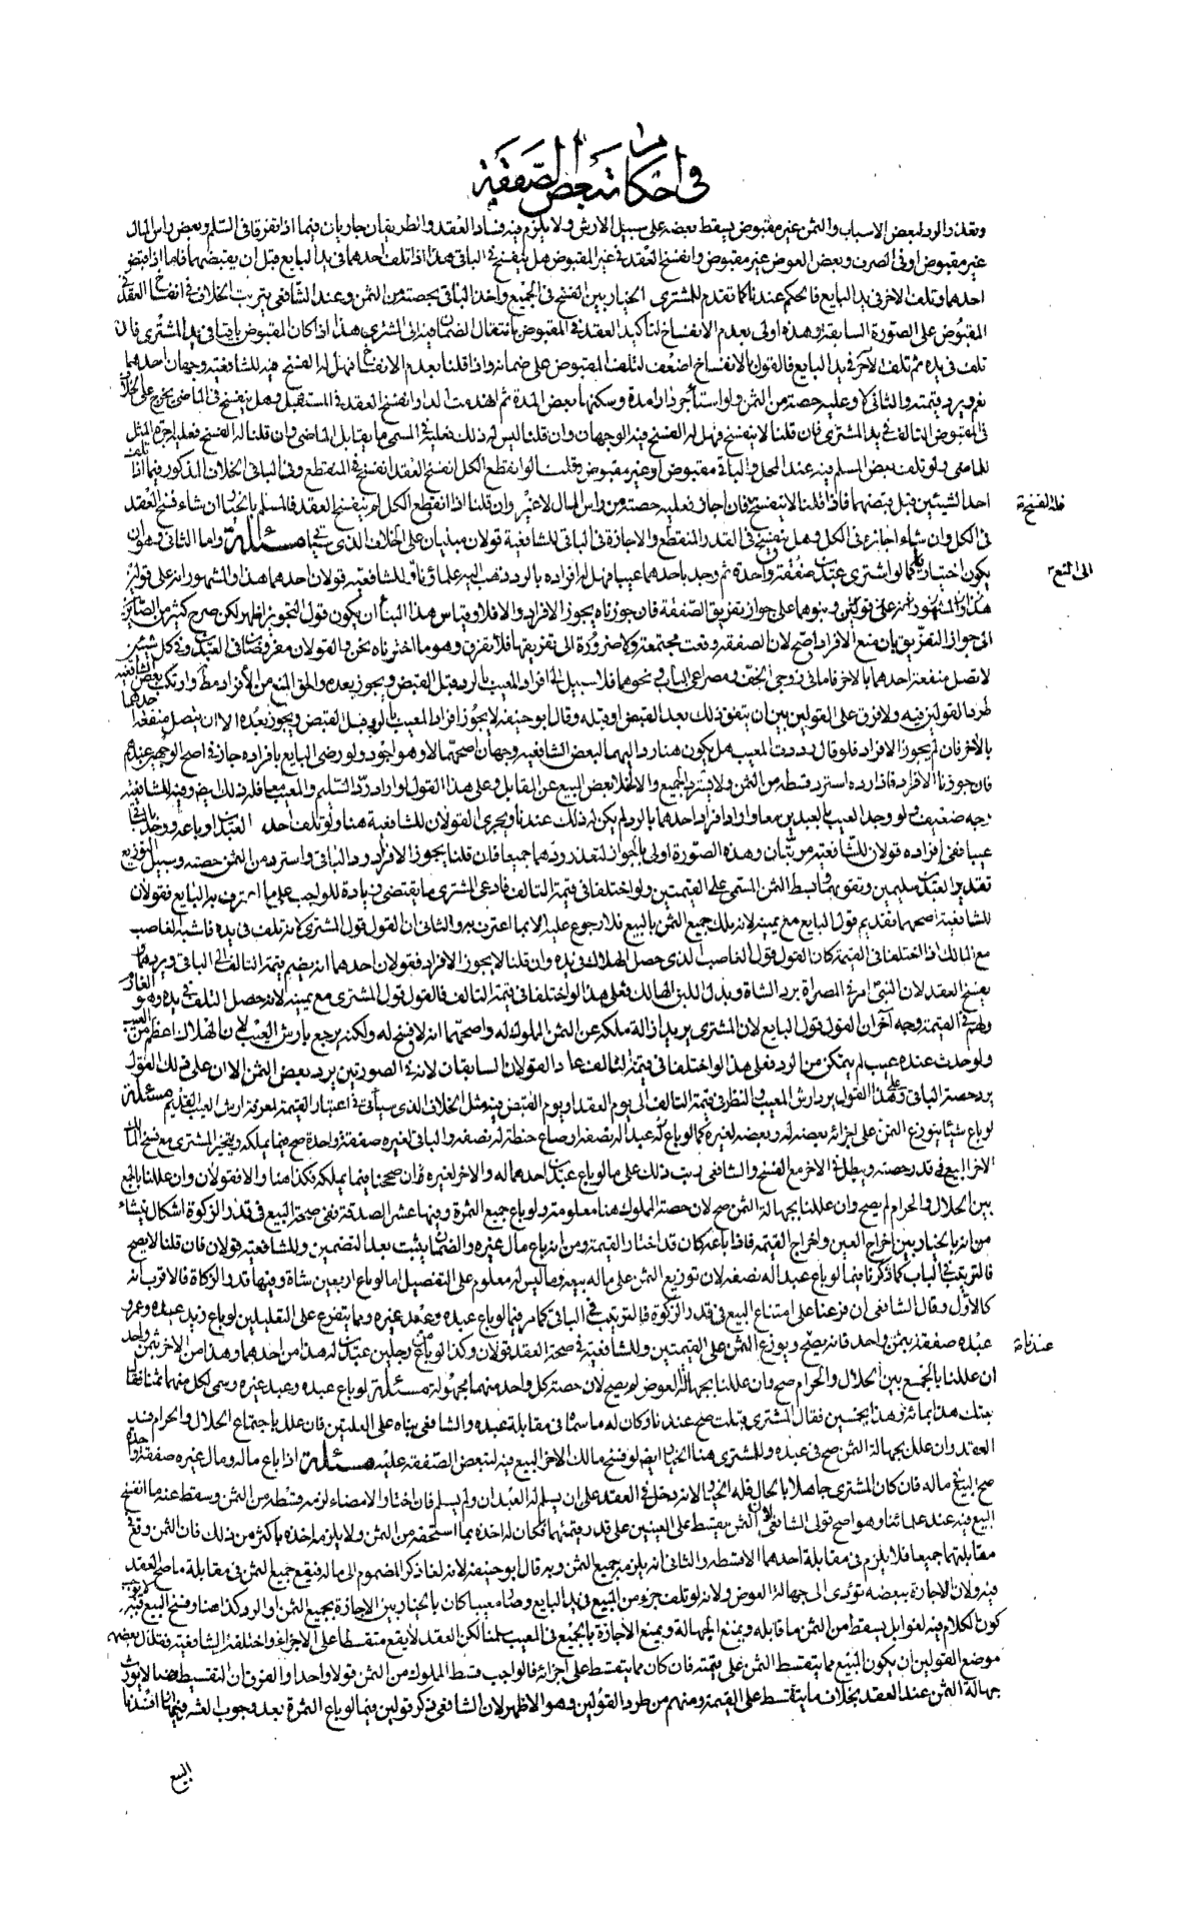 في احكام تبعض الصفقة
وتعذر الرد لبعض الاسباب والثمن غير مقبوض يسقط بعضه على سبيل الارش ولا يلزم منه فساد العقد والطريقان جاريان فيما اذا تفرقا في السلم وبعض راس المال
غير مقبوض او في الصرف وبعض العوض غير مقبوض وانفسخ العقد في غير المقبوض هل ينفسخ في الباقي هذا اذا تلف احدهما في يد البايع قبل ان يقبضهما فاما اذا قبض
احدهما وتلف الاخر في يد البايع فالحكم عندنا كما تقدم للمشتري الخيار بين الفسخ في الجميع واخذ الباقي بحصته من الثمن وعند الشافعي يترتب الخلاف في انفساخ العقد في
المقبوض على الصورة السابقة وهذه اولى بعدم الانفساخ لتاكيد العقد في المقبوض بانتقال الضمان فيه الى المشتري هذا اذا كان المقبوض باقيا في يد المشتري فان
تلف في يده ثم تلف الاخر في يد البايع فالقول بالانفساخ اضعف لتلف المقبوض على ضمانه واذا قلنا بعدم الانفساخ فهل له الفسخ فيه للشافعية وجهان احدهما
نعم ويرد قيمته والثاني لا وعليه حصته من الثمن ولو استأجر دارا مدة وسكنها بعض المدة ثم انهدمت الدار انفسخ العقد في المستقبل وهل ينفسخ في الماضي يخرج على الخلاف
في المقبوض التالف في يد المشتري فان قلنا لا ينفسخ فهل له الفسخ فيه الوجهان وان قلنا ليس له ذلك فعليه في المسمى ما يقابل الماضي وان قلنا له الفسخ فعليه اجرة المثل
للماضي ولو تلف بعض المسلم فيه عند المحل والباقي مقبوض او غير مقبوض وقلنا لو انقطع الكل انفسخ العقد انفسخ في المنقطع وفي الباقي الخلاف المذكور فيما اذا تلف
احد الشيئين قبل قبضهما فاذا قلنا لا ينفسخ فان اجاز فعليه حصته من راس المال لا غير وان قلنا اذا انقطع الكل لم ينفسخ العقد فالمسلم بالخيار ان شاء فسخ العقد
فله الفسخ
في الكل وان شاء اجازه في الكل وهل يفسخ في القدر المنقطع والاجازة في الباقي للشافعية قولان مبنيان على الخلاف الذي سبق مسئلة واما الثاني وهو ان
يكون اختياريا كما لو اشترى عبدين صفقة واحدة ثم وجد باحدهما عيبا فهل له افراده بالرد ذهب اليه علماؤنا وللشافعية قولان احدهما هذا والمشهور انه على قولين
الى المنع
هذا والمشهور انه على قولين وبنوهما على جواز تفريق الصفقة فان جوزناه يجوز الافراد والا فلا وقياس هذا البناء ان يكون قول التجويز اظهر لكن صرح كثير من الصائرين
الى جواز التفريق بان منع الافراد اصح لان الصفقة وقعت مجتمعة ولا ضرورة الى تفريقها فلا تفرق وهو ما اخترناه نحن والقولان مفروضان في العبدين وفي كل شيئين
لا تصل منفعة احدهما بالاخر فاما في زوجي الخف ومصراعي الباب ونحوهما فلا سبيل الى افراد المعيب بالرد قبل القبض ويجوز بعده والحق المنع من الافراد مطلقا وارتكب بعض الشافعية
طرد القولين فيه ولا فرق على القولين بين ان يتفق ذلك بعد القبض او قبله وقال ابو حنيفة لا يجوز افراد المعيب بالرد قبل القبض ويجوز بعده الا ان يتصل منفعة احدهما
بالاخر فان لم يجوز الافراد فلو قال رددت المعيب هل يكون هذا ردا لهما لبعض الشافعية وجهان اصحهما لا وهو اجود ولو رضي البايع بافراده جاز في اصح الوجهين عندهم
فان جوزنا الافراد فاذا رده استرد قسطه من الثمن ولا يسترد الجميع والا لخلا بعض المبيع عن المقابل وعلى هذا القول لو اراد رد السليم والمعيب معا فله ذلك وفيه للشافعية
وجه ضعيف ولو وجد العيب بالعبدين معا واراد افراد احدهما بالرد لم يكن له ذلك عندنا ويجرى القولان للشافعية هنا ولو تلف احد العبدين او باعه ووجد بالباقي
عيبا ففي افراده قولان للشافعية مرتبان وهذه الصورة اولى بالجواز لتعذر ردهما جميعا فان قلنا يجوز الافراد رد الباقي واسترد من الثمن حصته وسبيل التوزيع
تقدير العبدين سليمين وتقويمهما وبسط الثمن المسمى على القيمتين ولو اختلفا في قيمة التالف فادعى المشتري ما يقتضي زيادة للواجب على ما اعترف به البايع فقولان
للشافعية اصحهما تقديم قول البايع مع يمينه لانه ملك جميع الثمن بالبيع فلا رجوع عليه الا بما اعترف به والثاني ان القول قول المشتري لانه تلف في يده فاشبه الغاصب
مع المالك اذا اختلفا في القيمة كان القول قول الغاصب الذي حصل الهلاك في يده وان قلنا لا يجوز الافراد فقولان احدهما انه يضم قيمة التالف الى الباقي ويردهما
بفسخ العقد لان النبي امر في المصراة برد الشاة وبدل اللبن الهالك فعلى هذا لو اختلفا في قيمة التالف فالقول قول المشتري مع يمينه لانه حصل التلف في يده وهو الغارم
ولهم في القيمة وجه آخر ان القول قول البايع لان المشتري يريد ازالة ملكه عن الثمن المملوك له واصحهما انه لا فسخ له ولكنه يرجع بارش العيب لان الهلاك اعظم من العيب
ولو حدث عنده عيب لم يتمكن من الرد فعلى هذا لو اختلفا في قيمة التالف عاد القولان السابقان لانه في الصورتين يرد بعض الثمن الا ان على ذلك القول
يرد حصة الباقي وعلى هذا القول يرد ارش المعيب والنظر في قيمة التالف الى يوم العقد او يوم القبض فيه مثل الخلاف الذي سيأتي في اعتبار القيمة لمعرفة ارش العيب القديم مسئلة
لو باع شيئا يتوزع الثمن على اجزائه بعضه له وبعضه لغيره كما لو باع عبدا له نصفه او صاع حنطة له نصفه والباقي لغيره صفقة واحدة صح فيما يملكه ويتخير المشتري مع فسخ المالك
الاخر البيع في قدر حصته ويبطل في الاخر مع الفسخ والشافعي رتب ذلك على ما لو باع عبدين احدهما له والاخر لغيره فان صححنا فيما يملكه فكذا هنا والا فقولان وان عللنا بالجمع
بين الحلال والحرام لم يصح وان عللنا بجهالة الثمن صح لان حصة المملوك هنا معلومة ولو باع جميع الثمرة وفيها عشر الصدقة ففي صحة البيع في قدر الزكوة اشكال ينشأ
من انه بالخيار بين اخراج العين واخراج القيمة فاذا باعه كان قد اختار القيمة ومن انه باع مال غيره والضمان يثبت بعد التضمين وللشافعية قولان فان قلنا لا يصح
فالترتيب في الباب كما ذكرنا فيما لو باع عبدا له نصفه لان توزيع الثمن على ماله فيه وما ليس له معلوم على التفصيل اما لو باع اربعين شاة وفيها قدر الزكاة فالاقرب انه
كالاول وقال الشافعي ان فرعنا على امتناع البيع في قدر الزكوة فالترتيب في الباقي كما مر فيما لو باع عبده وعبد غيره ومما يتفرع على التعليلين لو باع زيد عبده وعمرو
عبده صفقة بثمن واحد فانه يصح ويوزع الثمن على القيمتين وللشافعية في صحة العقد قولان وكذا لو باع من رجلين عبدين له هذا من احدهما وهذا من الاخر بثمن واحد
عندنا
ان عللنا بالجمع بين الحلال والحرام صح وان عللنا بجهالة العوض لم يصح لان حصة كل واحد منهما مجهولة مسئلة لو باع عبده وعبد غيره وسمى لكل منهما ثمنا فقال
بعتك هذا بمائة وهذا بخمسين فقال المشتري قبلت صح عندنا وكان له ما سمى في مقابلة عبده والشافعي بناه على العلتين فان علل باجتماع الحلال والحرام فسد
العقد وان علل بجهالة الثمن صح في عبده وللمشتري هنا الخيار ايضا لو فسخ مالك الاخر البيع فيه لتبعض الصفقة عليه مسئلة اذا باع ماله ومال غيره صفقة واحدة
صح البيع في ماله فان كان المشتري جاهلا بالحال فله الخيار لانه دخل في العقد على ان يسلم له العبدان ولم يسلم فان اختار الامضاء لزمه قسطه من الثمن وسقط عنه ما انفسخ
البيع فيه عند علمائنا وهو اصح قولي الشافعي لان الثمن يقسط على العينين على قدر قيمتهما فكان له اخذه بما استحقه من الثمن ولا يلزمه اخذه باكثر من ذلك فان الثمن وقع في
مقابلتهما جميعا فلا يلزم في مقابلة احدهما الا قسطه والثاني انه يلزمه جميع الثمن وبه قال ابو حنيفة لانه لغا ذكر المضموم الى ماله فيقع جميع الثمن في مقابلة ما صح العقد
فيه ولان الاجازة ببعضه تؤدي الى جهالة العوض ولانه لو تلف جزء من المبيع في يد البايع وصار معيبا كان بالخيار بين الاجازة بجميع الثمن او الرد كذا هنا وفسخ البيع فيه لا يوجب
كون الكلام فيه لغوا بل يسقط من الثمن ما قابله ويمنع الجهالة ويمنع الاجازة بالجميع في المعيب سلمنا لكن العقد لا يقع متقسطا على الاجزاء واختلفت الشافعية فقال بعضهم
موضع القولين ان يكون المبيع مما يتقسط الثمن على قيمته فان كان مما يتقسط على اجزائه فالواجب قسط المملوك من الثمن قولا واحدا والفرق ان التقسيط هنا لا يورث
جهالة الثمن عند العقد بخلاف ما يتقسط على القيمة ومنهم من طرد القولين وهو الاظهر لان الشافعي ذكر قولين فيما لو باع الثمرة بعد وجوب العشر فيها اذا افسدنا
البيع